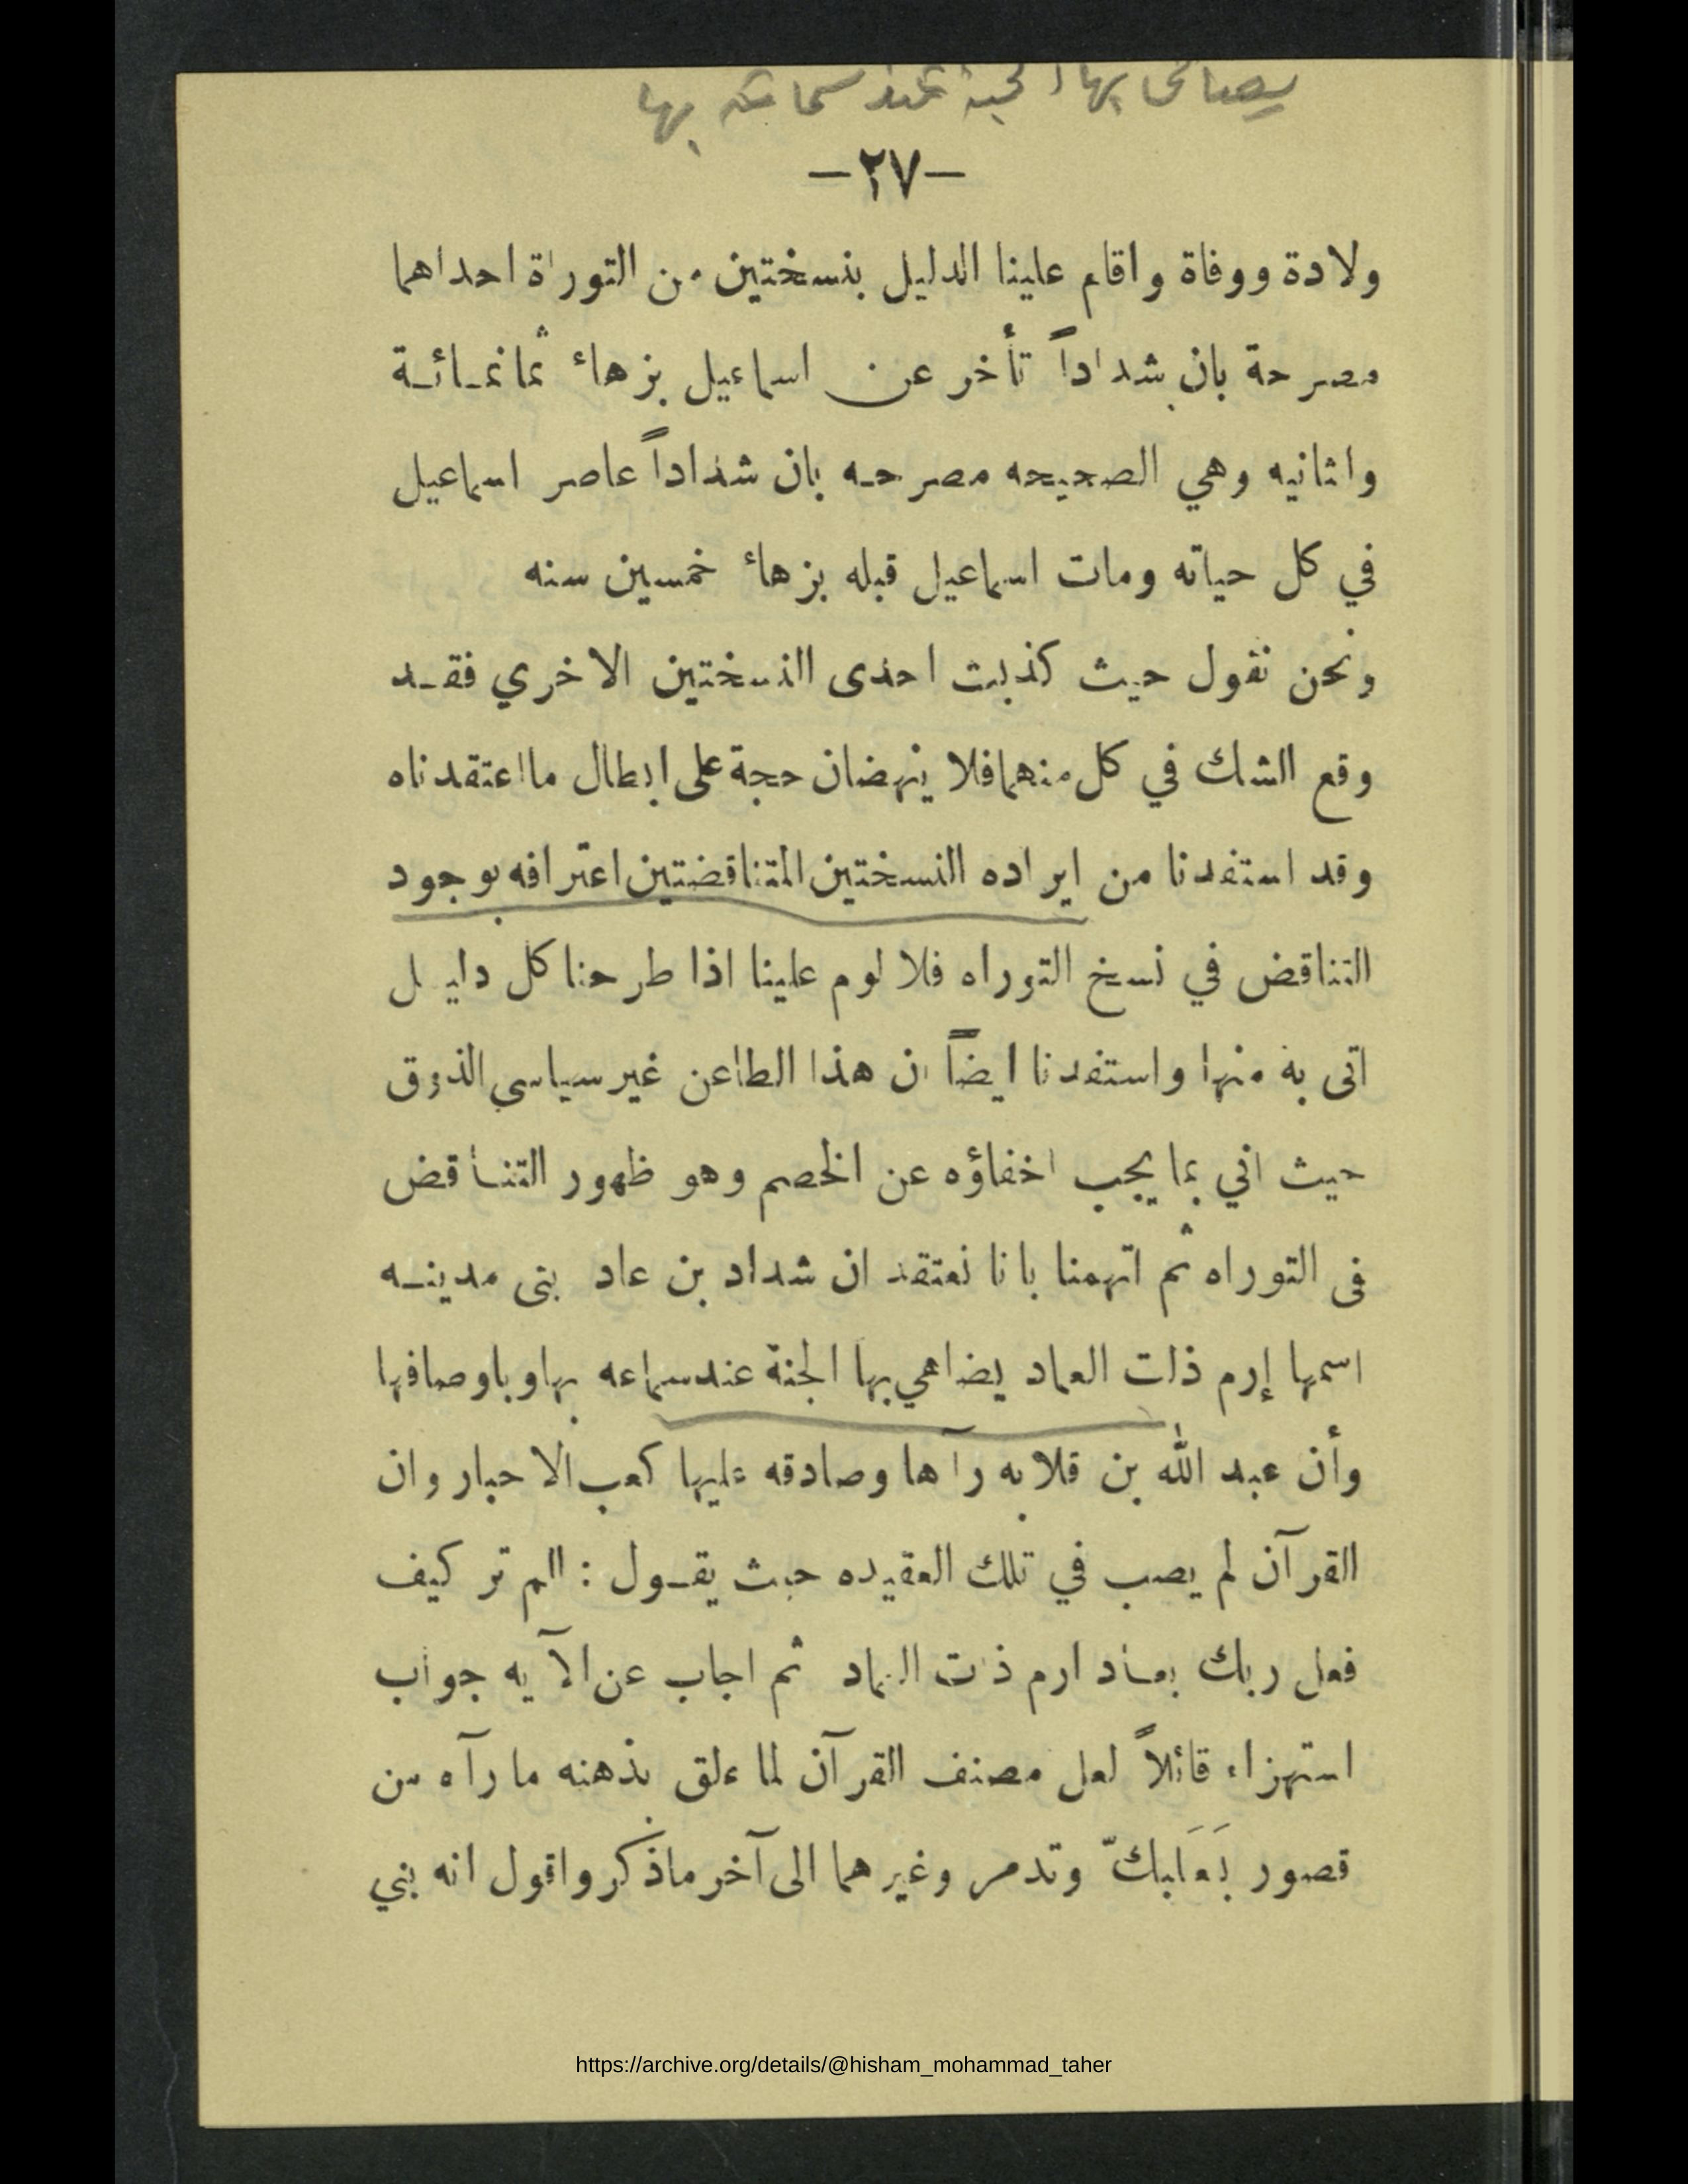 يضاهي بها الجنة عند سماعه بها
-٢٧-
ولادة ووفاة واقام علينا الدليل بنسختين من التوراة احداهما
مصرحة بان شداداً تأخر عن اسماعيل بزهاء ثمانمـائـة
واثانيه وهي الصحيحه مصرحـه بان شداداً عاصر اسماعيل
في كل حياته ومات اسماعيل قبله بزهاء خمسين سنه
ونحن نقول حيث كذبت احدى النسختين الاخري فقـد
وقع الشك في كل منهما فلا ينهضان حجة على ابطال مااعتقدناه
وقد استفدنا من ايراده النسختين المتناقضتين اعترافه بوجود
التناقض في نسخ التوراه فلا لوم علينا اذا طرحنا كل دليل
اتى به منها واستفدنا ايضاً ان هذا الطاعن غير سياسي الذوق
حيث اتي بما يجب اخفاؤه عن الخصم وهو ظهور التنـاقض
فى التوراه ثم اتهمنا بانا نعتقد ان شداد بن عاد بنى مدينـه
اسمها إرم ذات العماد يضاهي بها الجنة عند سماعه بها وباوصافها
وأن عبد الله بن قلابه رآها وصادقه عليها كعب الاحبار وان
القرآن لم يصب في تلك العقيده حيث يقـول : الم تر كيف
فعل ربك بعـاد ارم ذات العماد ثم اجاب عن الآيه جواب
استهزاء قائلاً لعل مصنف القرآن لما علق بذهنه ما رآه من
قصور بَعَلبكّ وتدمر وغيرهما الى آخر ماذكر واقول انه بني
https://archive.org/details/@hisham_mohammad_taher